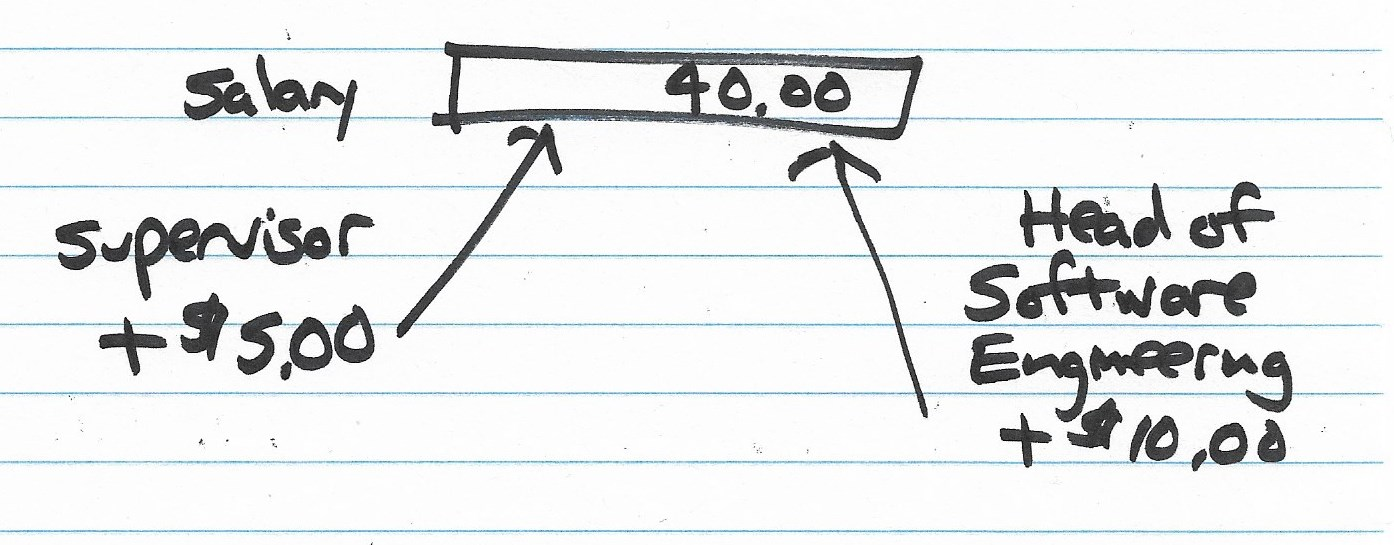 Salary 40.00
Supervisor
+ $5.00
Head of
Software
Engineering
+ $10.00